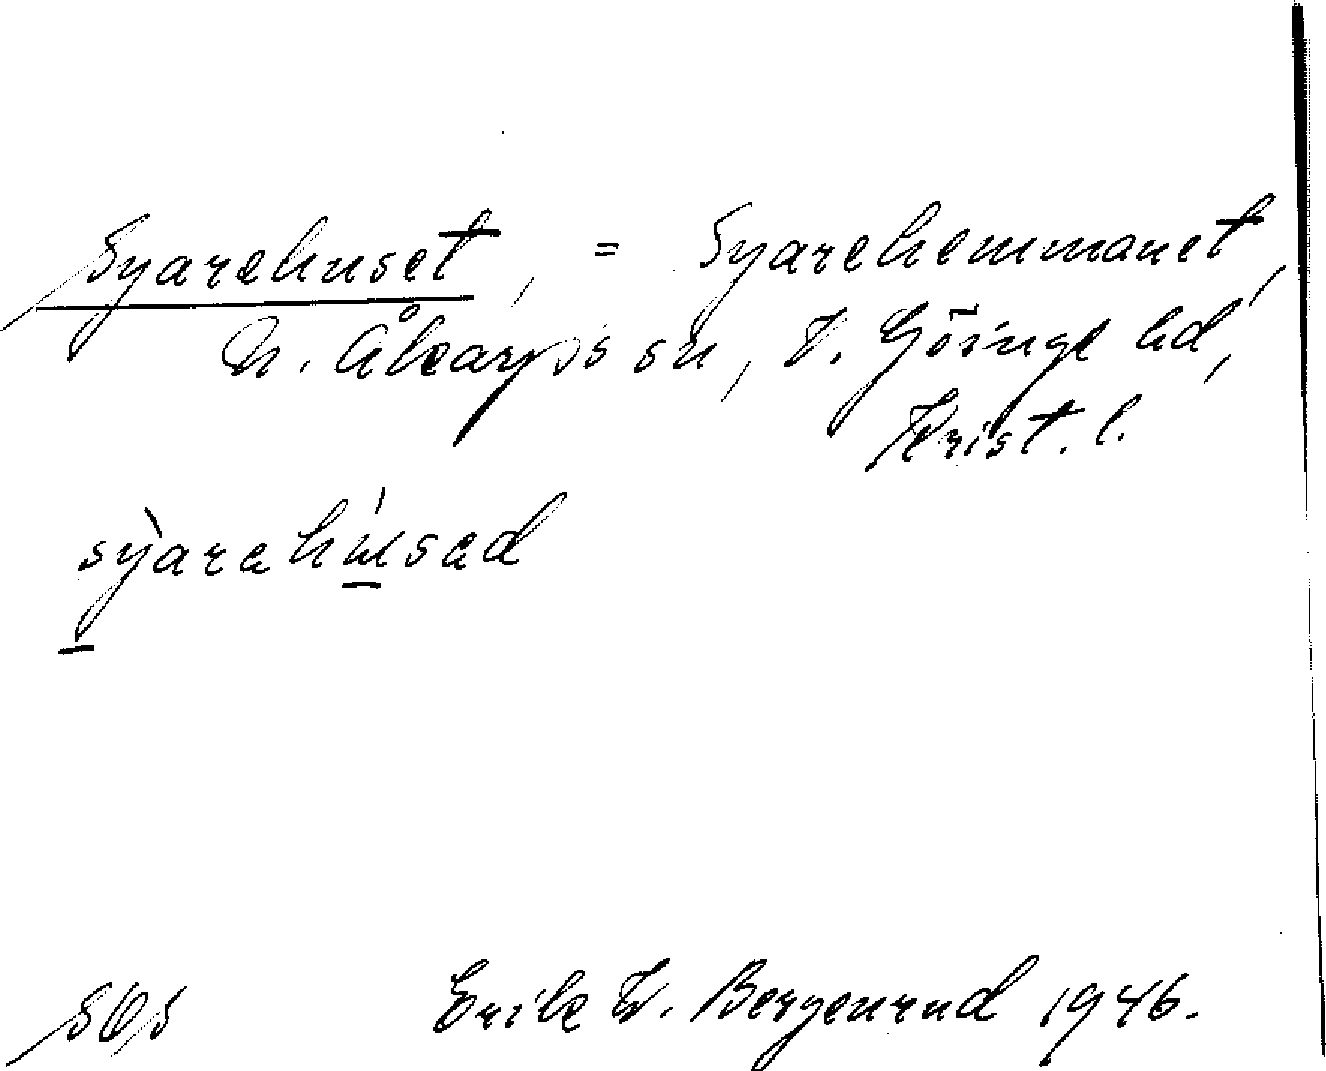 Syarehuset, = Syarehemmanet,
N. Åkarps sn, V. Göinge hd,
Krist. l.
sỳarahúsad
Erik W. Bergenrud 1946.